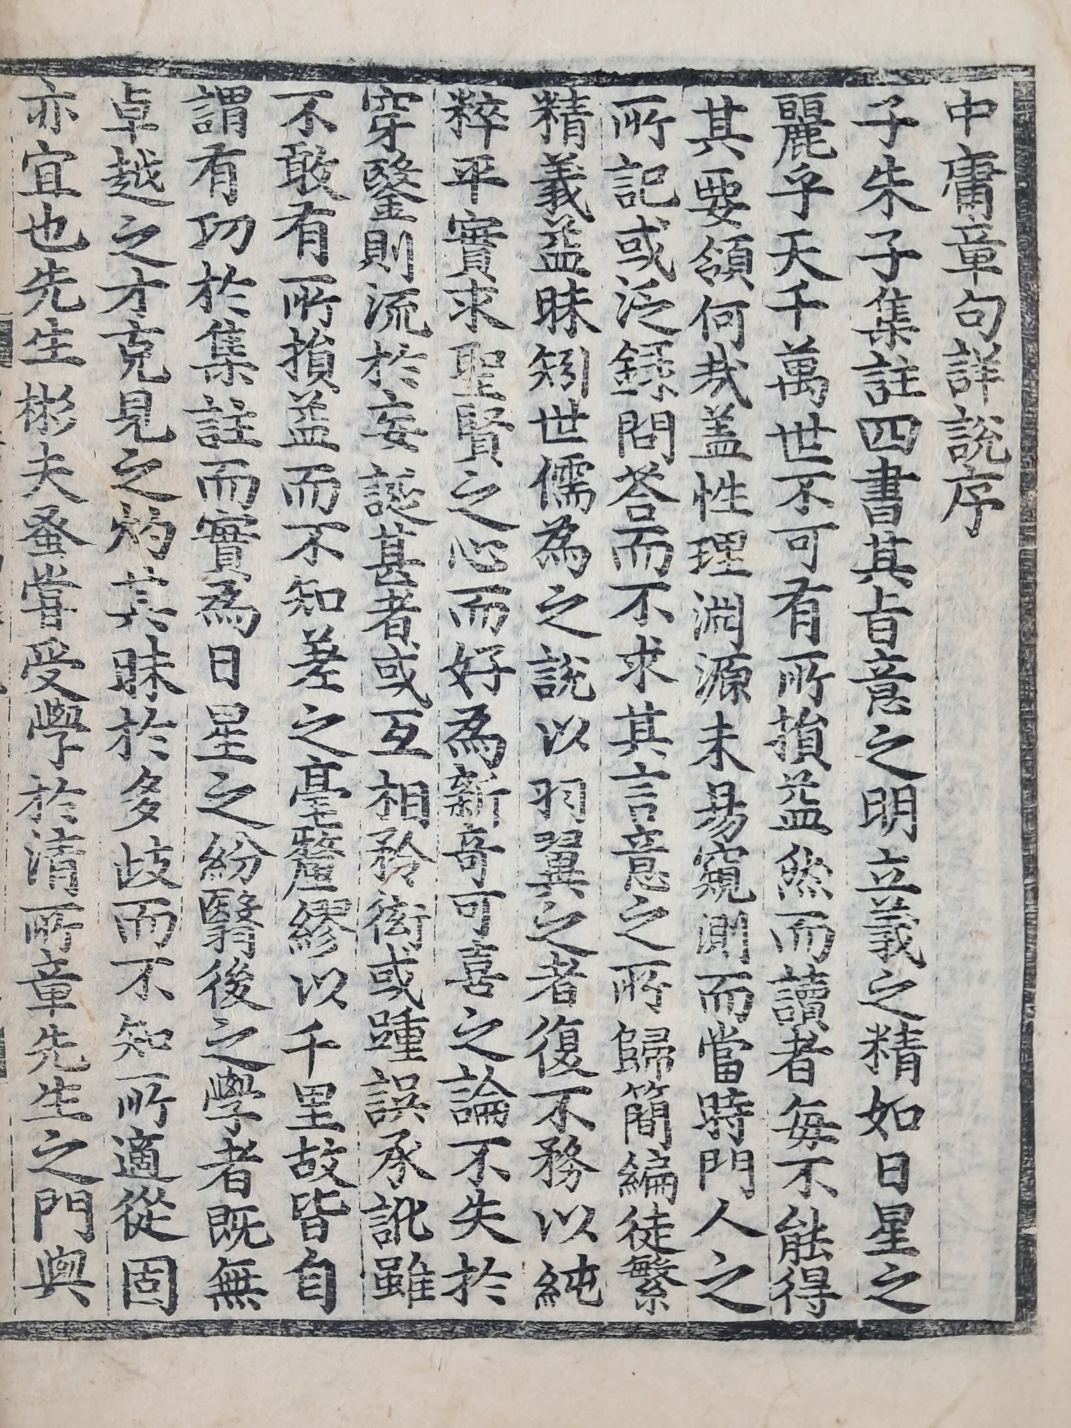 中庸章句詳說序
子朱子集註四書其㫖意之明立義之精如日星之
麗乎天千萬世不可有所損益然而讀者每不能得
其要領何㢤盖性理淵源未易窺測而當時門人之
所記或泛録問答而不求其言意之所歸簡編徒繁
精義益昧矧世儒為之說以羽翼之者復不務以純
粹平實求聖賢之心而好為新奇可喜之論不失於
穿鑿則流於妄誕甚者或互相矜衒或踵誤承訛雖
不敢有所損益而不知差之毫釐繆以千里故皆自
謂有功於集註而實為日星之紛翳後之學者既無
卓越之才克見之灼其昧於多歧而不知所適從固
亦宜也先生彬夫蚤嘗受學於清所章先生之門與